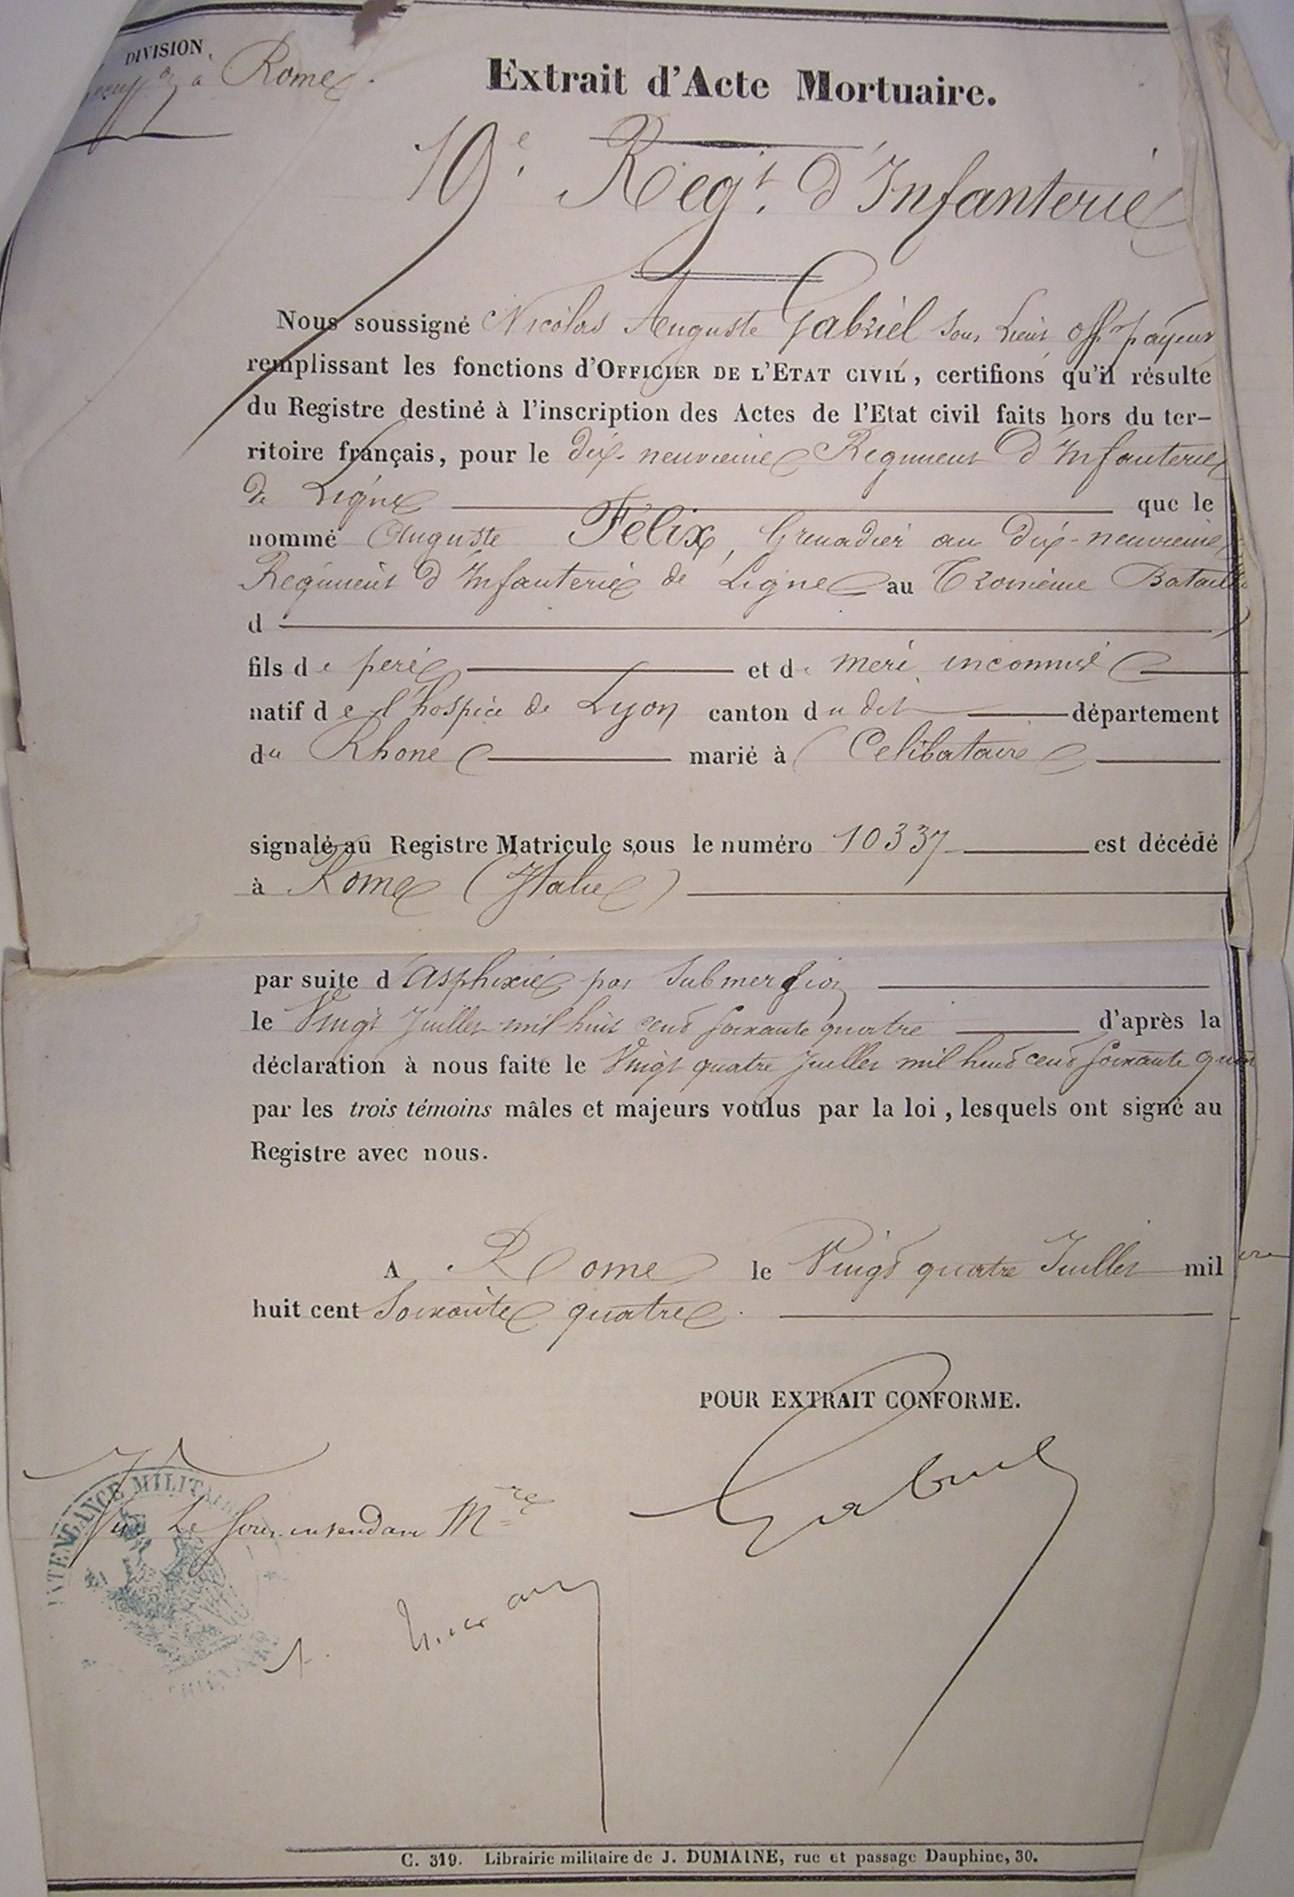 DIVISION,
à Rome.
Extrait d'Acte Mortuaire.
19e. Regt. d'Infanterie
Nous soussigné Nicolas Auguste Gabriel Sous Lieut offer payeur
remplissant les fonctions d'OFFICIER DE L'ETAT CIVIL, certifions qu'il résulte
du Registre destiné à l'inscription des Actes de l'Etat civil faits hors du ter-
ritoire français, pour le dix-neuvième Regiment d'Infanterie
de Ligne que le
nommé Auguste Félix, Grenadier au Dix-neuvieme
Regiment d'Infanterie de Ligne au Troisième Bataillon
d
fils de pere et de mere inconnus
natif de l'hospice de Lyon canton du dit département
du Rhone marié à Celibataire
signalé au Registre Matricule sous le numéro 10337 est décédé
à Rome (Italie)
par suite d'asphixie par submersion
le Vingt Juillet mil huit cent soixante quatre d'après la
déclaration à nous faite le Vingt quatre Juillet mil huit cent soixante quatre
par les trois témoins mâles et majeurs voulus par la loi, lesquels ont signé au
Registre avec nous.
A Rome le Vingt quatre Juillet mil
huit cent soixante quatre.
POUR EXTRAIT CONFORME.
Gabriel
Vu Le Sous-intendant Mre
INTENDANCE MILITAIRE
C. 319. Librairie militaire de J. DUMAINE, rue et passage Dauphine, 30.